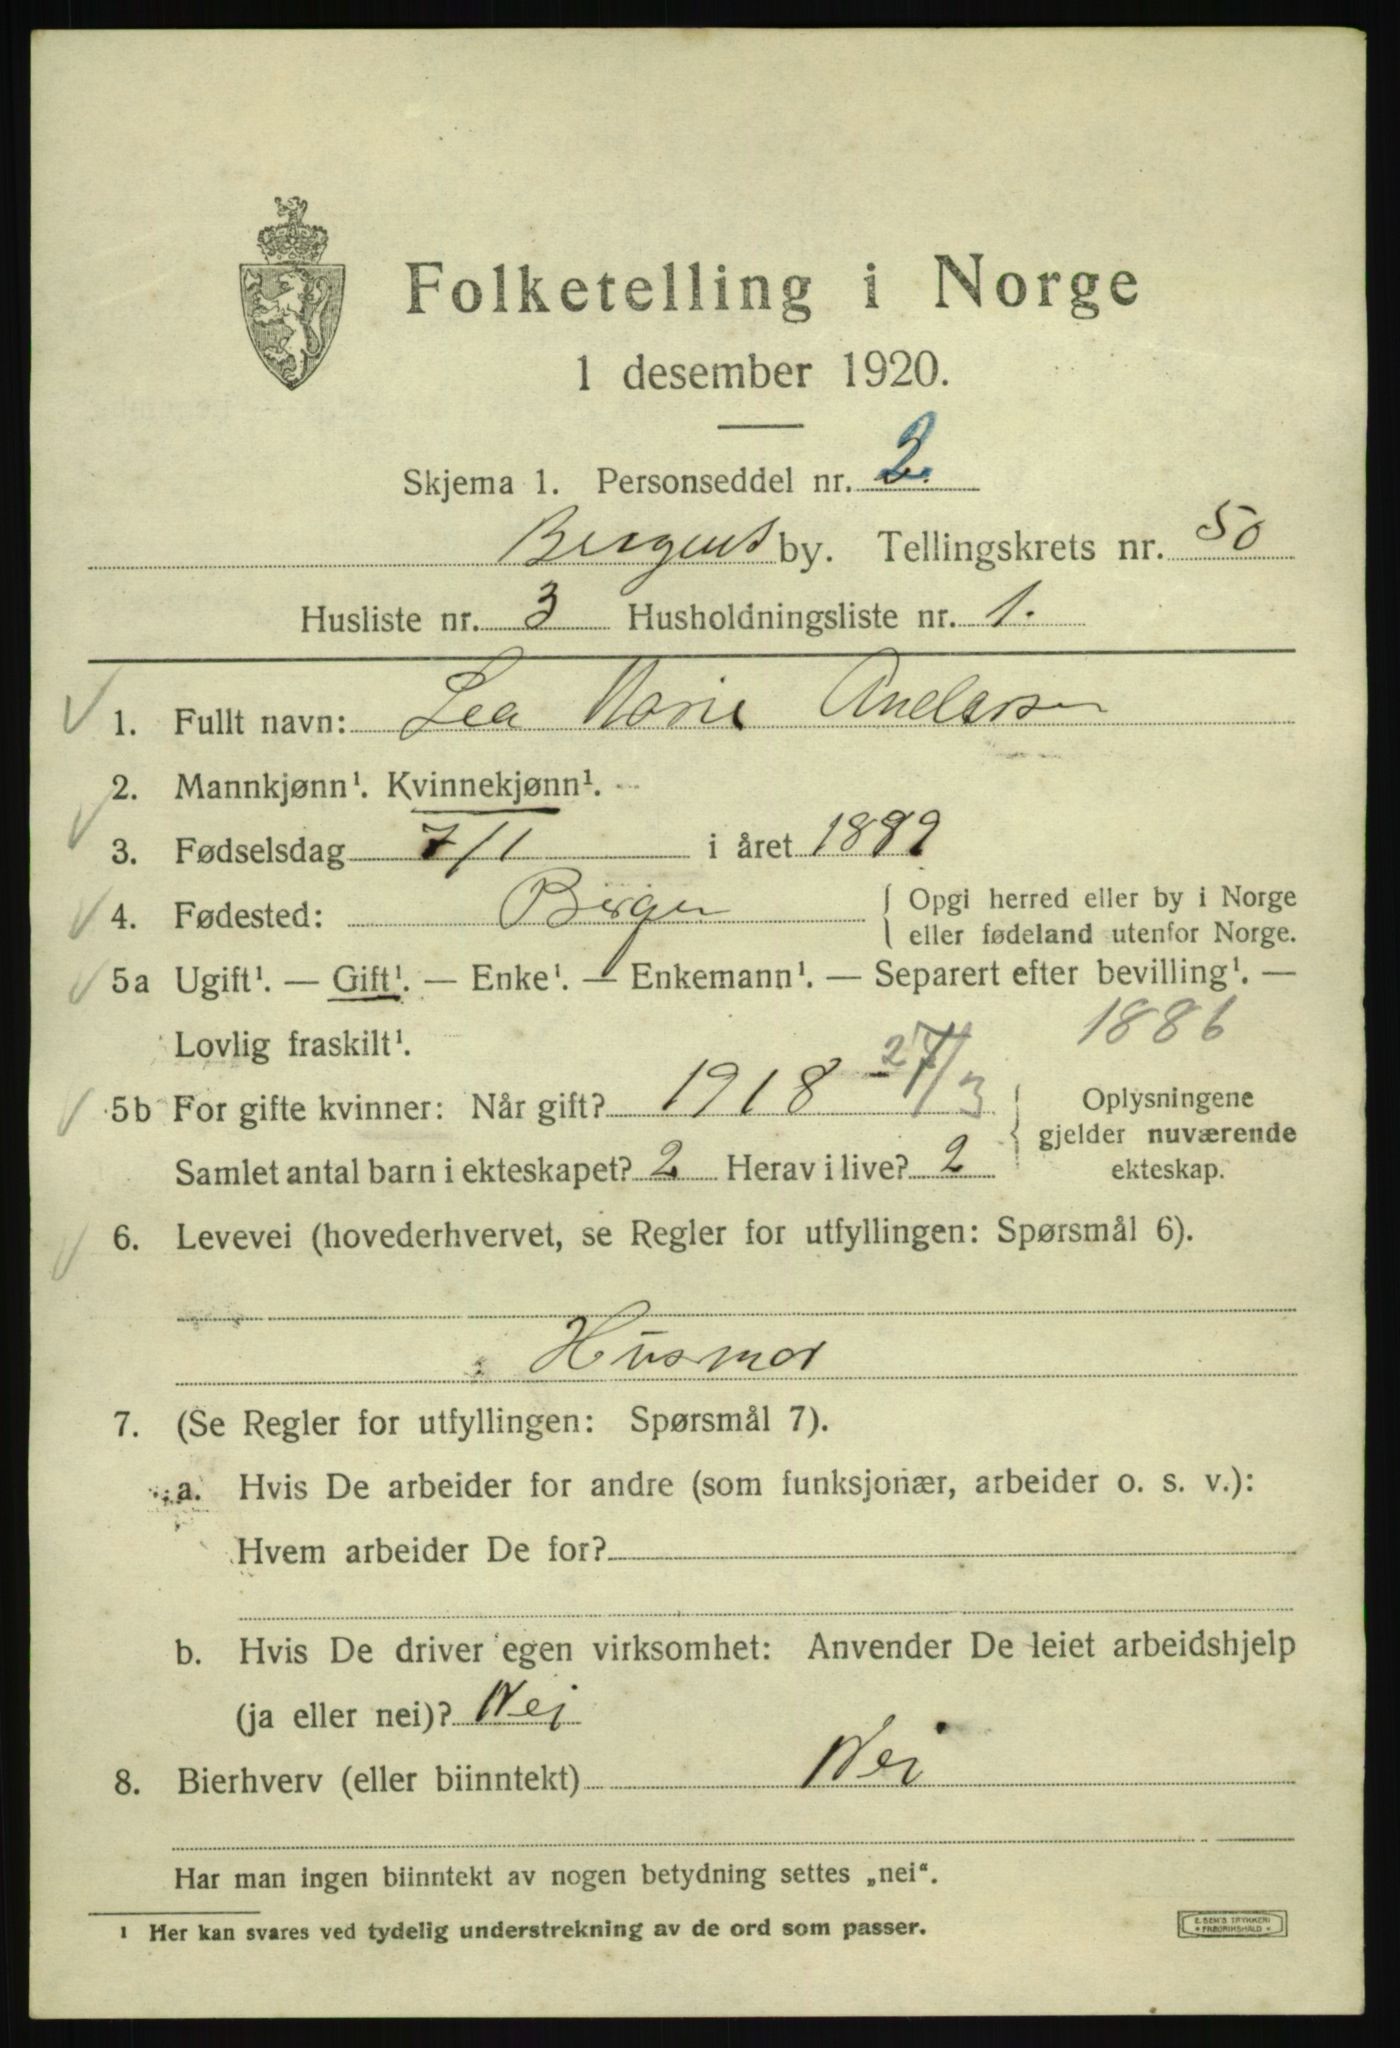 Folketelling i Norge
1 desember 1920.
Skjema 1. Personseddel nr. 2.
Bergens by. Tellingskrets nr. 50
Husliste nr. 3 Husholdningsliste nr. 1.
1. Fullt navn: Lea Marie Andersen
2. Mannkjønn¹. Kvinnekjønn¹.
3. Fødselsdag 7/1 i året 1889
4. Fødested: Bergen { Opgi herred eller by i Norge
eller fødeland utenfor Norge.
5a Ugift¹. — Gift¹. — Enke¹. — Enkemann¹. — Separert efter bevilling¹. —
Lovlig fraskilt¹. 1886
5b For gifte kvinner: Når gift? 1918 27/3 { Oplysningene
gjelder nuværende
Samlet antal barn i ekteskapet? 2 Herav i live? 2 ekteskap.
6. Levevei (hovederhvervet, se Regler for utfyllingen: Spørsmål 6).
Husmor
7. (Se Regler for utfyllingen: Spørsmål 7).
a. Hvis De arbeider for andre (som funksjonær, arbeider o. s. v.):
Hvem arbeider De for?
b. Hvis De driver egen virksomhet: Anvender De leiet arbeidshjelp
(ja eller nei)? Nei
8. Bierhverv (eller biinntekt) Nei
Har man ingen biinntekt av nogen betydning settes „nei“.
¹ Her kan svares ved tydelig understrekning av de ord som passer.
E. SEM'S TRYKKERI
* FREDRIKSHALD *